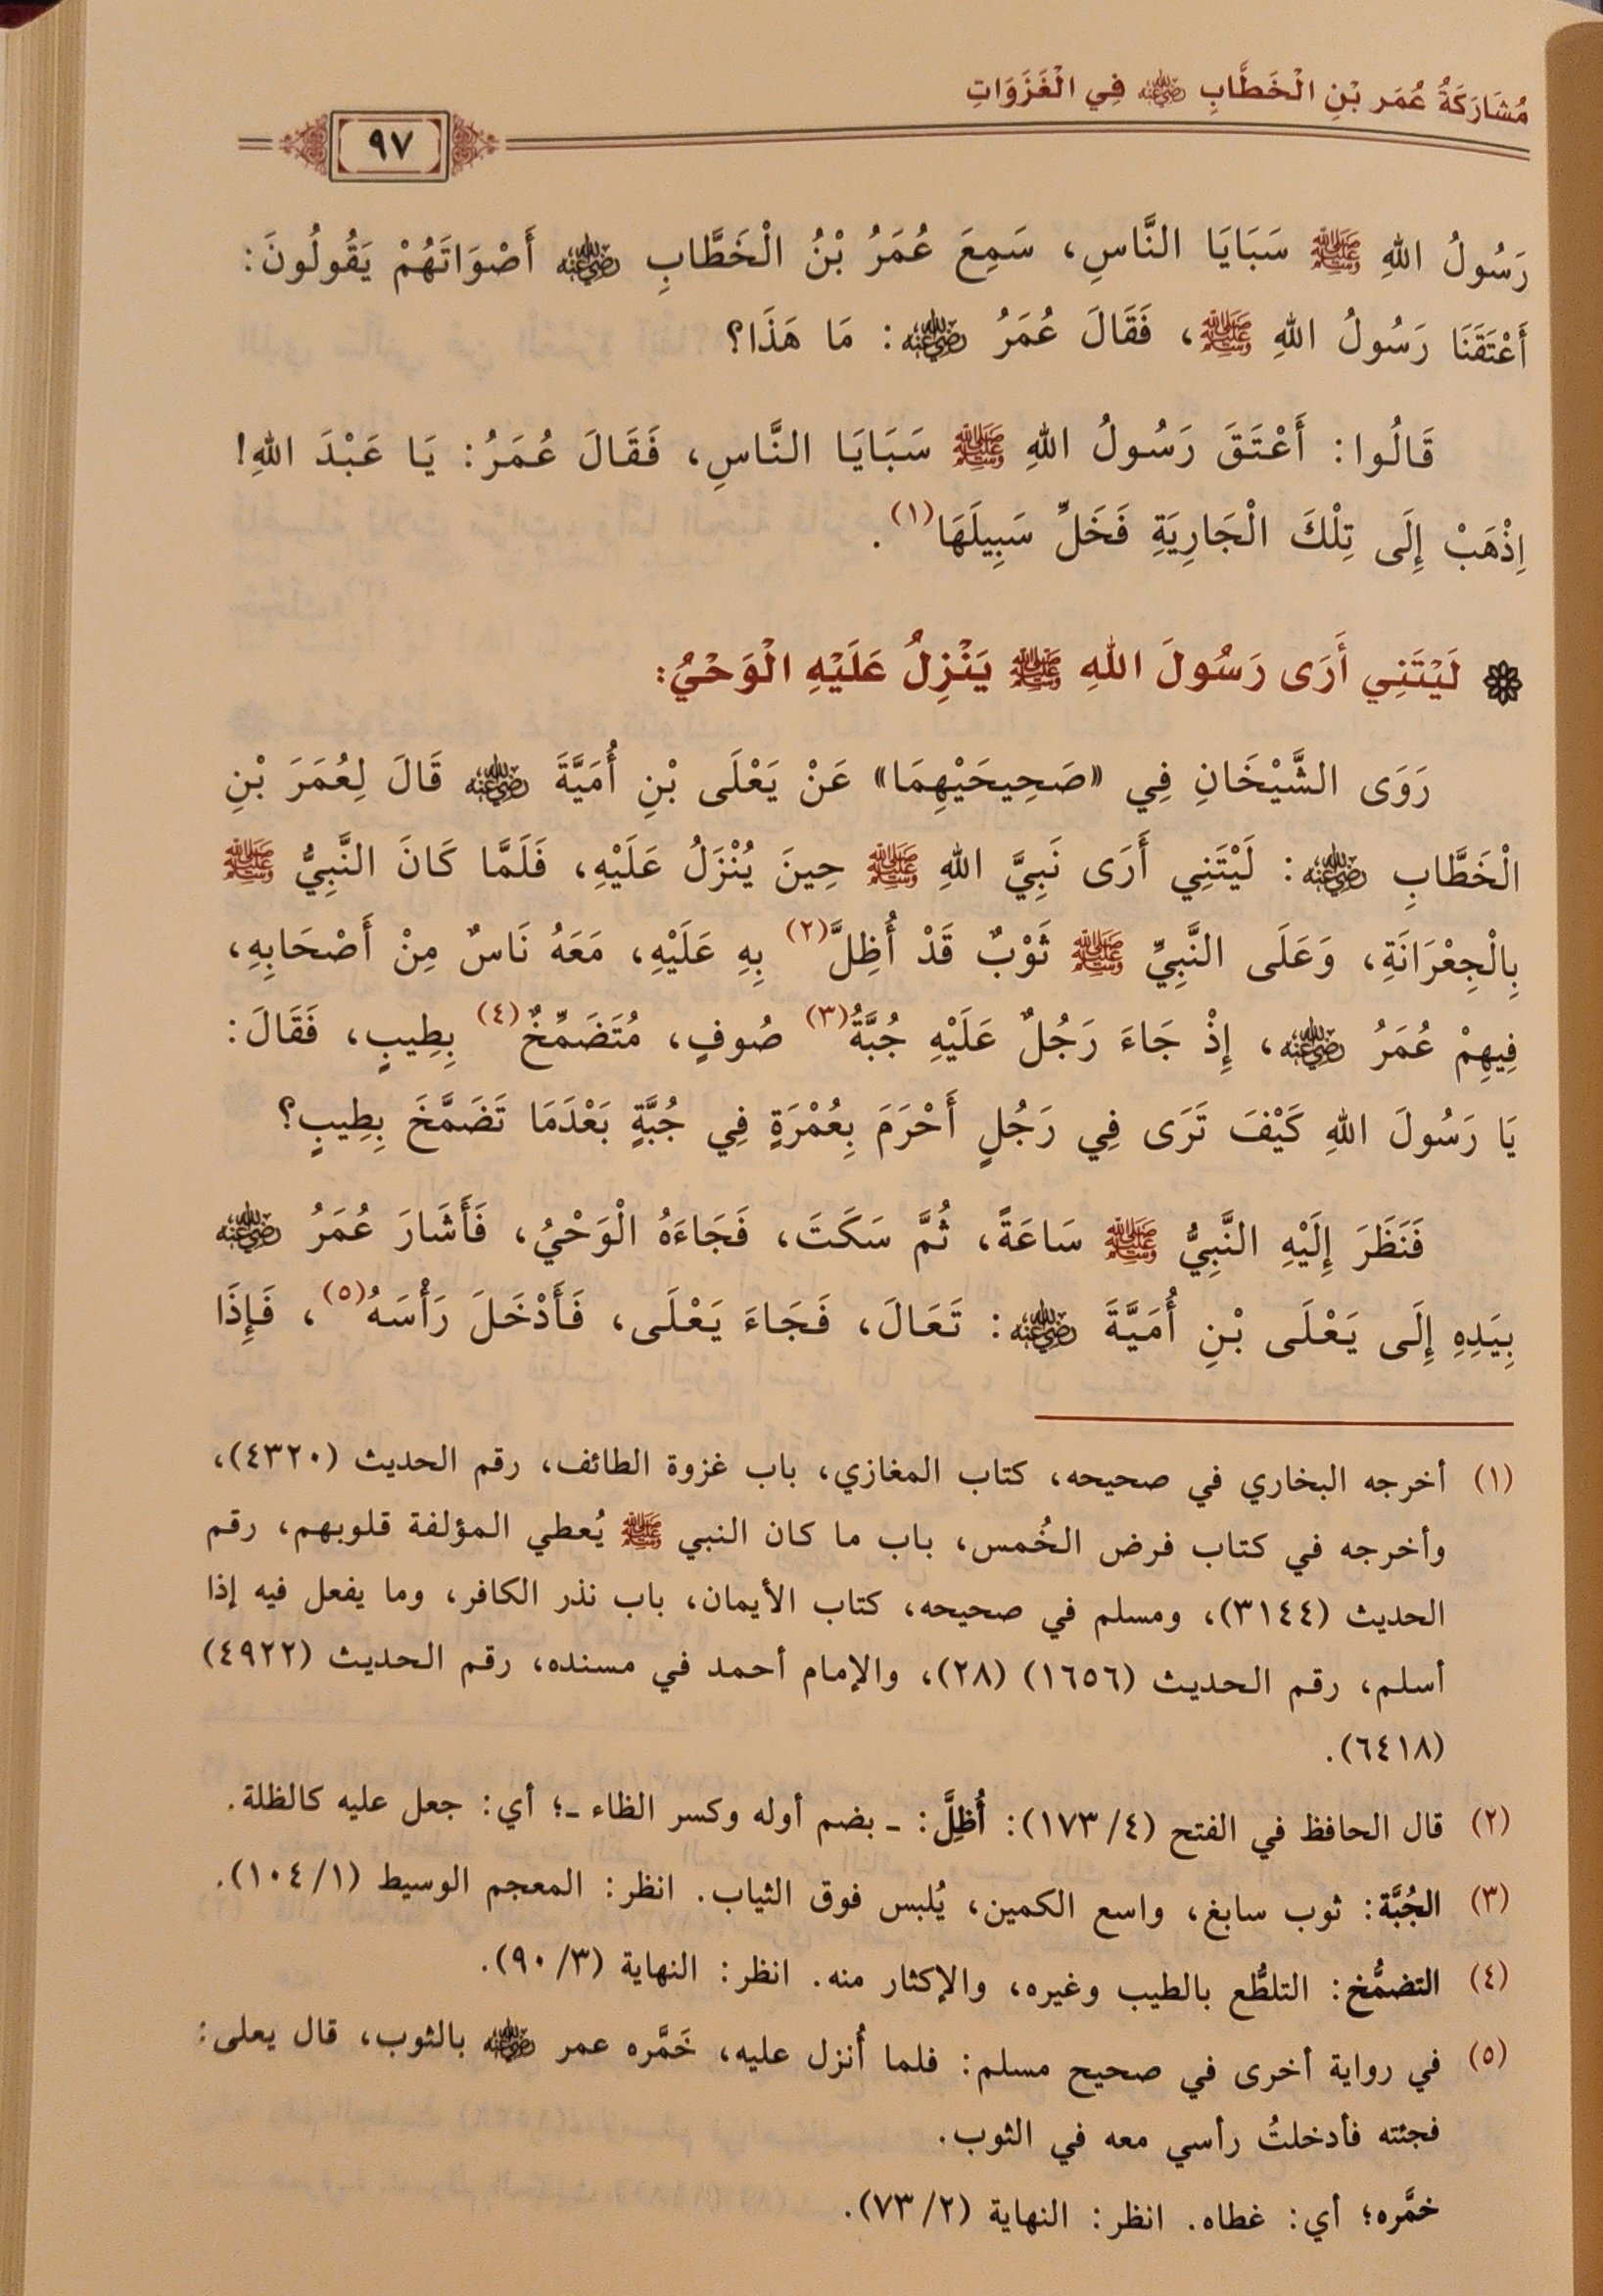 مُشَارَكَةُ عُمَر بْنِ الْخَطَّابِ رضي الله عنه فِي الْغَزَوَاتِ
٩٧
رَسُولُ اللهِ ﷺ سَبَايَا النَّاسِ، سَمِعَ عُمَرُ بْنُ الْخَطَّابِ رضي الله عنه أَصْوَاتَهُمْ يَقُولُونَ:
أَعْتَقَنَا رَسُولُ اللهِ ﷺ، فَقَالَ عُمَرُ رضي الله عنه: مَا هَذَا؟
قَالُوا: أَعْتَقَ رَسُولُ اللهِ ﷺ سَبَايَا النَّاسِ، فَقَالَ عُمَرُ: يَا عَبْدَ اللهِ!
اِذْهَبْ إِلَى تِلْكَ الْجَارِيَةِ فَخَلِّ سَبِيلَهَا(١).
لَيْتَنِي أَرَى رَسُولَ اللهِ ﷺ يَنْزِلُ عَلَيْهِ الْوَحْيُ:
رَوَى الشَّيْخَانِ فِي «صَحِيحَيْهِمَا» عَنْ يَعْلَى بْنِ أُمَيَّةَ رضي الله عنه قَالَ لِعُمَرَ بْنِ
الْخَطَّابِ رضي الله عنه: لَيْتَنِي أَرَى نَبِيَّ اللهِ ﷺ حِينَ يُنْزَلُ عَلَيْهِ، فَلَمَّا كَانَ النَّبِيُّ ﷺ
بِالْجِعْرَانَةِ، وَعَلَى النَّبِيِّ ﷺ ثَوْبٌ قَدْ أُظِلَّ(٢) بِهِ عَلَيْهِ، مَعَهُ نَاسٌ مِنْ أَصْحَابِهِ،
فِيهِمْ عُمَرُ رضي الله عنه، إِذْ جَاءَ رَجُلٌ عَلَيْهِ جُبَّةُ(٣) صُوفٍ، مُتَضَمِّخٌ(٤) بِطِيبٍ، فَقَالَ:
يَا رَسُولَ اللهِ كَيْفَ تَرَى فِي رَجُلٍ أَحْرَمَ بِعُمْرَةٍ فِي جُبَّةٍ بَعْدَمَا تَضَمَّخَ بِطِيبٍ؟
فَنَظَرَ إِلَيْهِ النَّبِيُّ ﷺ سَاعَةً، ثُمَّ سَكَتَ، فَجَاءَهُ الْوَحْيُ، فَأَشَارَ عُمَرُ رضي الله عنه
بِيَدِهِ إِلَى يَعْلَى بْنِ أُمَيَّةَ رضي الله عنه: تَعَالَ، فَجَاءَ يَعْلَى، فَأَدْخَلَ رَأْسَهُ(٥)، فَإِذَا
(١) أخرجه البخاري في صحيحه، كتاب المغازي، باب غزوة الطائف، رقم الحديث (٤٣٢٠)،
وأخرجه في كتاب فرض الخُمس، باب ما كان النبي ﷺ يُعطي المؤلفة قلوبهم، رقم
الحديث (٣١٤٤)، ومسلم في صحيحه، كتاب الأيمان، باب نذر الكافر، وما يفعل فيه إذا
أسلم، رقم الحديث (١٦٥٦) (٢٨)، والإمام أحمد في مسنده، رقم الحديث (٤٩٢٢)
(٦٤١٨).
(٢) قال الحافظ في الفتح (٤/ ١٧٣): أُظِلَّ: ـ بضم أوله وكسر الظاء ـ؛ أي: جعل عليه كالظلة.
(٣) الجُبَّة: ثوب سابغ، واسع الكمين، يُلبس فوق الثياب. انظر: المعجم الوسيط (١/ ١٠٤).
(٤) التضمُّخ: التلطُّع بالطيب وغيره، والإكثار منه. انظر: النهاية (٣/ ٩٠).
(٥) في رواية أخرى في صحيح مسلم: فلما أُنزل عليه، خَمَّره عمر رضي الله عنه بالثوب، قال يعلى:
فجئته فأدخلتُ رأسي معه في الثوب.
خمَّره؛ أي: غطاه. انظر: النهاية (٢/ ٧٣).